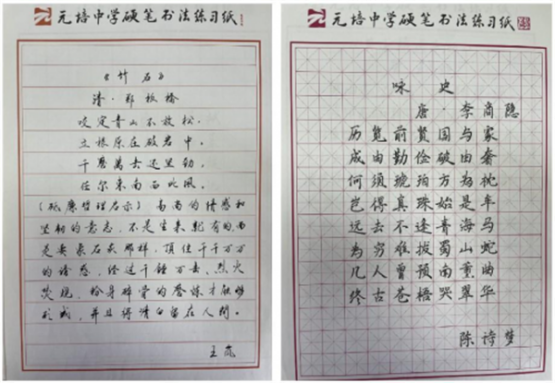 元培中学硬笔书法练习纸
《竹石》
清·郑板桥
咬定青山不放松，
立根原在破岩中。
千磨万击还坚劲，
任尔东西南北风。
高尚的情感和
坚韧的意志，不是生来就有的，而
是要象石灰那样，顶住千千万万
的锤
炼，粉身碎骨的
形成，并且将清白留在人间。
王岚
元培中学硬笔书法练习纸
咏史
唐·李商隐
历览前贤国与家
成由勤俭破由奢
何须琥珀方为枕
岂得真珠始是车
远去不逢青海马
力穷难拔蜀山蛇
几人曾预南薰曲
终古苍梧哭翠华
陈诗梦